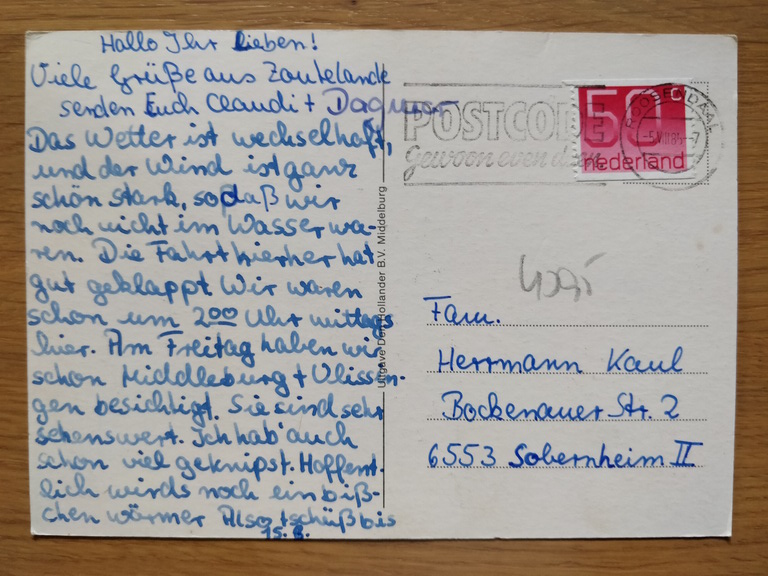 Hallo Ihr lieben!
Viele Grüße aus Zoutelande
senden Euch Claudi + Dagmar
Das Wetter ist wechselhaft,
und der Wind ist ganz
schön stark, sodaß wir
noch nicht im Wasser wa-
ren. Die Fahrt hierher hat
gut geklappt Wir waren
schon um 2oo Uhr mittags
hier. Am Freitag haben wir
schon Middleburg + Vlissin-
gen besichtigt. Sie sind sehr
sehenswert. Ich hab' auch
schon viel geknipst. Hoffent-
lich wirds noch ein biß-
chen wärmer Also tschüß bis
15.8.
Uitgave Den Hollander B.V. Middelburg
POSTCODE
Gewoon even doen
50c
nederland
ROOSENDAAL
-5.VIII.8
Fam.
Herrmann Kaul
Bockenauer Str. 2
6553 Sobernheim II